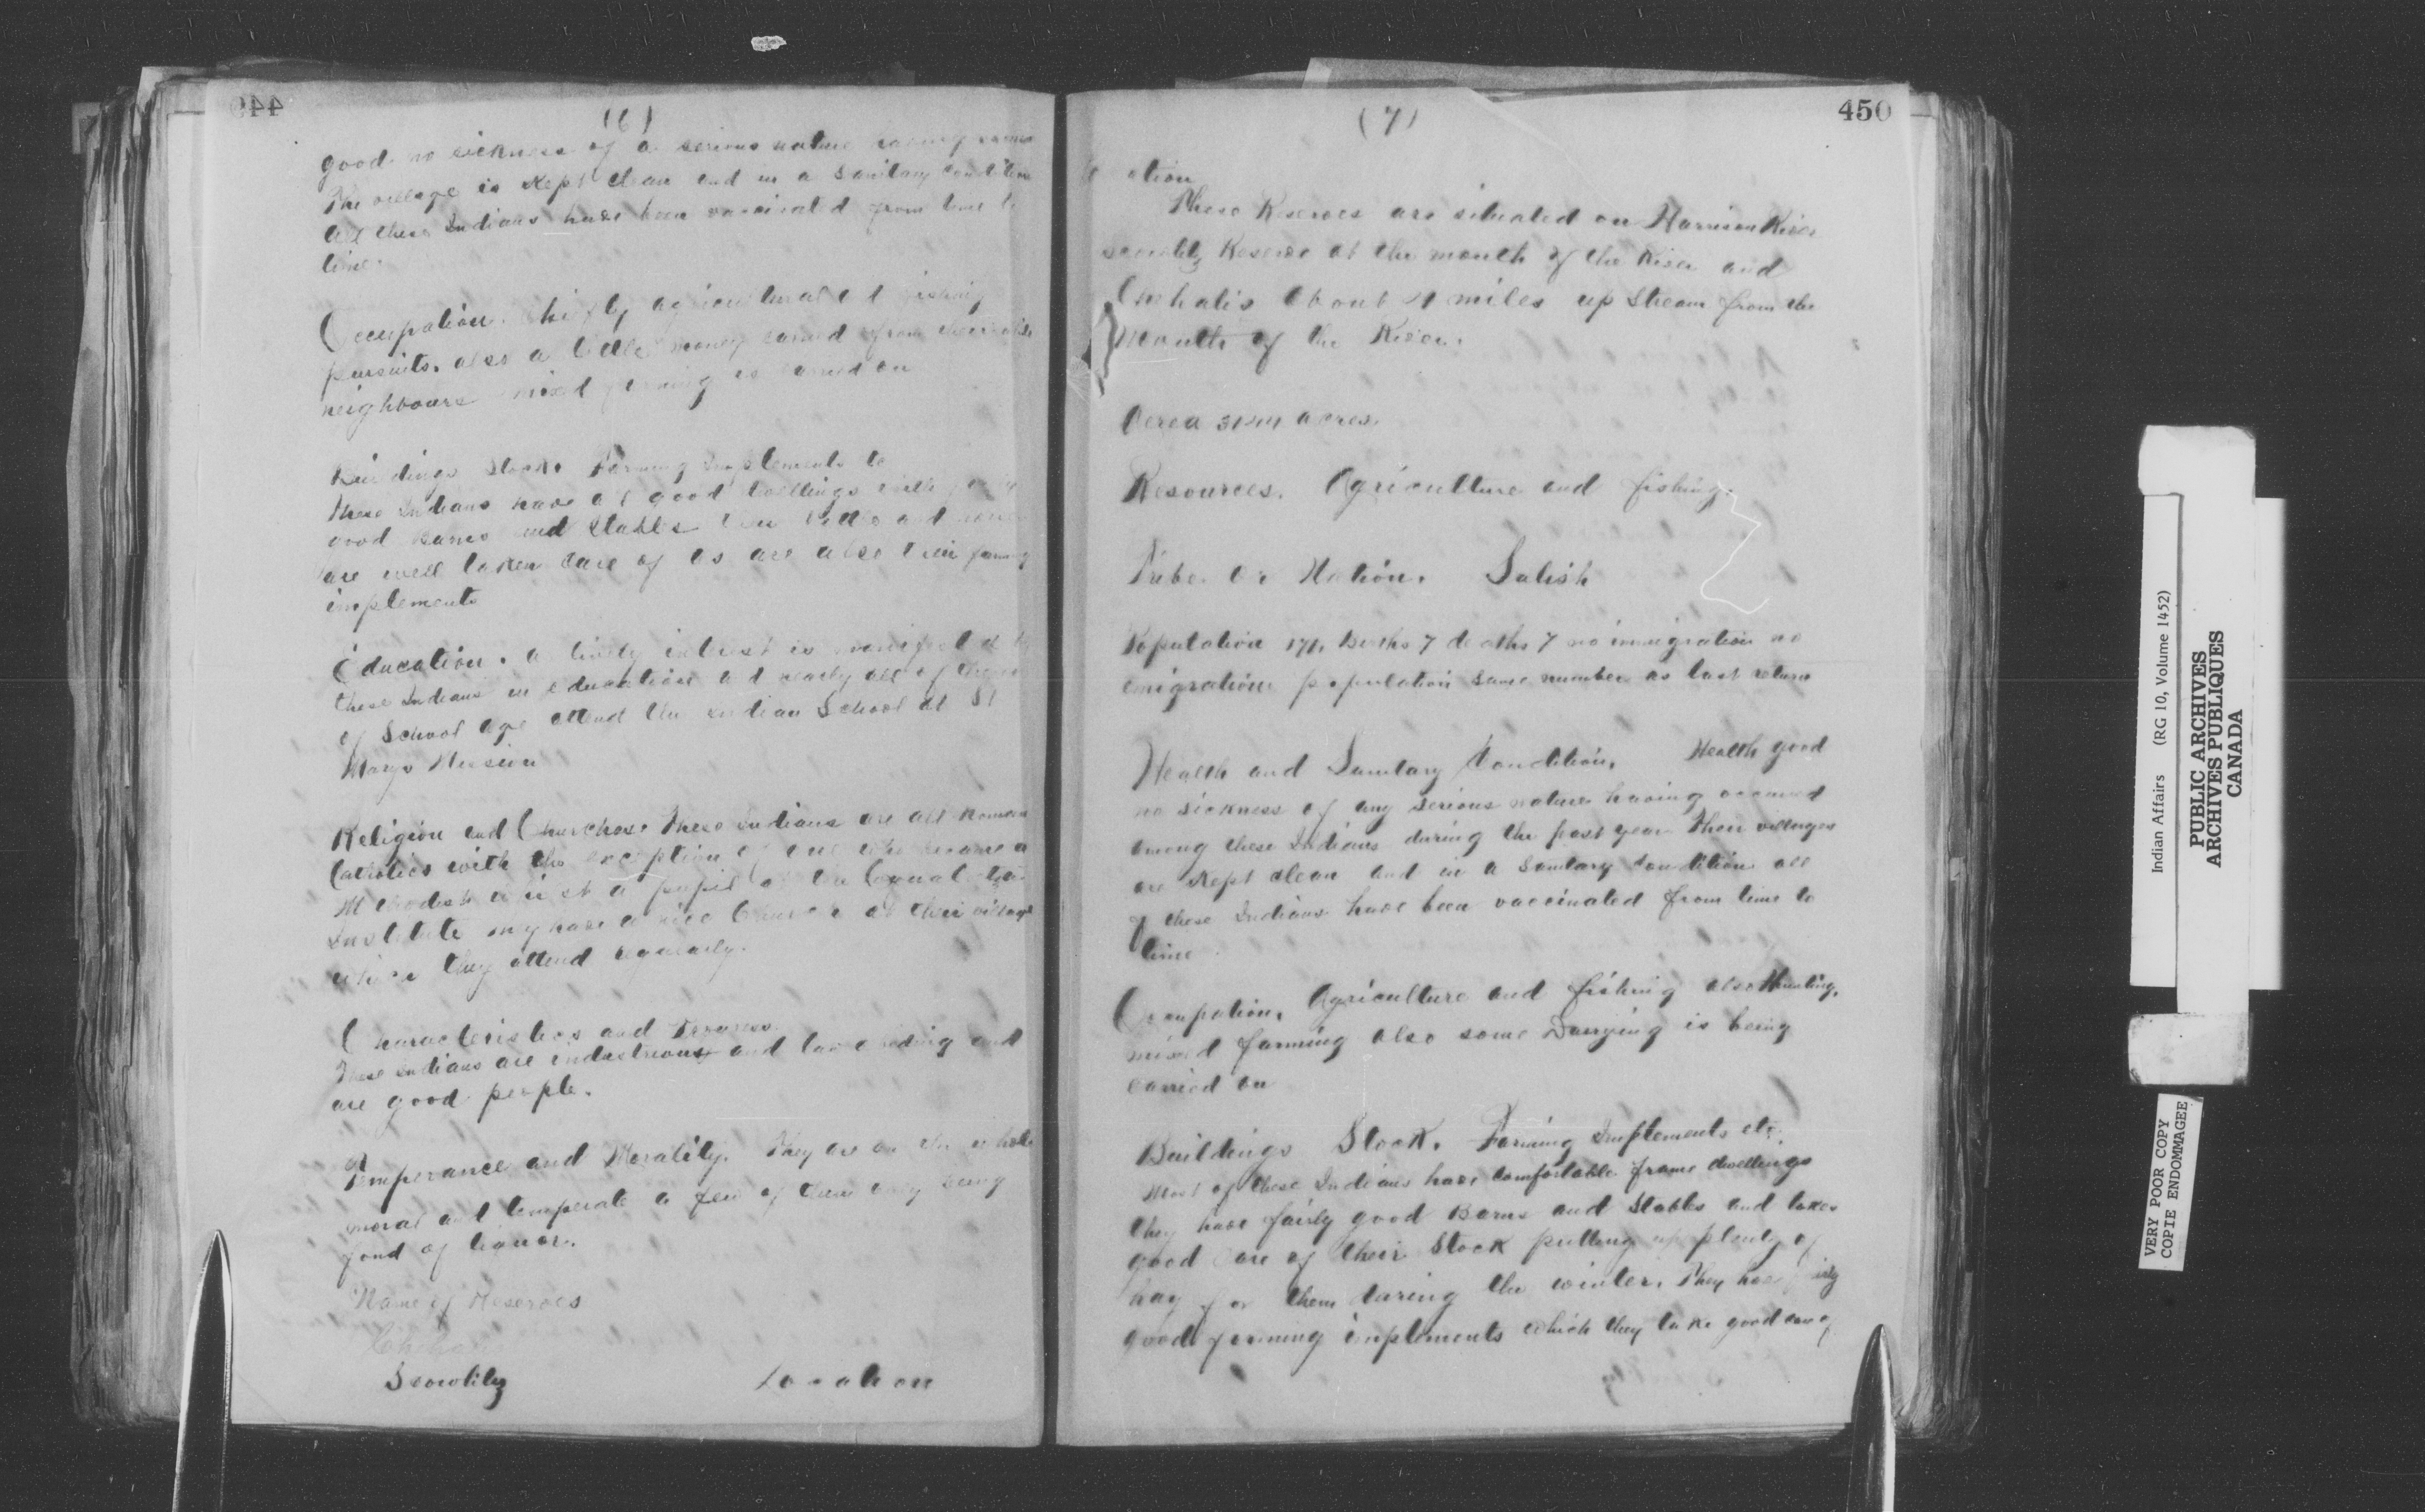 (6)
good no sickness of a serious nature having
The village is kept clean and in a Sanitary Condition
all these Indians have been vaccinated from time to
time.
Occupation. chiefly agricultural and fishing
pursuits. also a little money earned from their white
neighbours mixed farming is carried on
Buildings Stock. Farming Implements etc
These Indians have all good dwellings with
good Barns and Stables their Cattle and
are well taken care of as are also their farming
implements
Education. a lively interest is manifested by
these Indians in education and nearly all of those
of School age attend the Indian School at St
Marys Mission
Religion and Churches. These Indians are all Roman
Catholics with the exception of one who became a
Methodist whilst a pupil at the Coqualeetza
Institute they have a nice Church at their village
which they attend regularly.
Characteristics and Progress.
These Indians are industrious and law abiding and
are good people.
Temperance and Morality. They are on the whole
moral and temperate a few of them only being
fond of liquor.
Name of Reserves
Chehalis
Scowlitz Location
(7)
450
ation
These Reserves are situated on Harrison River
Scowlitz Reserve at the mouth of the River and
Chehalis About 4 miles up Stream from the
Mouth of the River.
Aerea acres.
Resources. Agriculture and fishing.
Tribe. Or Nation. Salish
Population 171. Births 7 deaths 7 no immigration no
emigration population same number as last return
Health and Sanitary Condition. Health good
no sickness of any serious nature having occurred
among these Indians during the past year Their villages
are kept clean and in a Sanitary Condition all
of these Indians have been vaccinated from time to
time
Occupation. Agriculture and fishing also Hunting.
mixed farming also some Dairying is being
carried on
Buildings Stock. Farming Implements etc.
Most of these Indians have comfortable frame dwellings
they have fairly good Barns and Stables and takes
good care of their Stock putting up plenty of
hay for them during the winter. They have fairly
good farming implements which they take good care of
Indian Affairs (RG 10, Volume 1452)
PUBLIC ARCHIVES
ARCHIVES PUBLIQUES
CANADA
VERY POOR COPY
COPIE ENDOMMAGEE